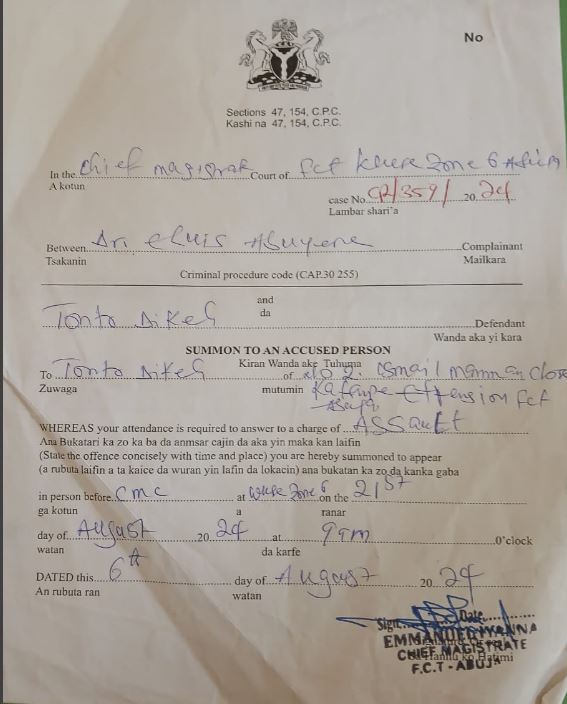 No
Sections 47, 154, C.P.C.
Kashi na 47, 154, C.P.C.
In the Chief magistrate Court of FCT Wuse Zone 6 Abuja
A kotun
case No. CR/359/ 2024
Lambar shari'a
Between Dri Elvis Complainant
Tsakanin Mailkara
Criminal procedure code (CAP.30 255)
and
da
Tonto Dikeh Defendant
Wanda aka yi kara
SUMMON TO AN ACCUSED PERSON
Kiran Wanda ake Tuhuma
To Tonto Dikeh of No 2. Ismail Mamman Close
Zuwaga mutumin Katampe Extension FCT
Abuja
WHEREAS your attendance is required to answer to a charge of ASSault
Ana Bukatari ka zo ka ba da anmsar cajin da aka yin maka kan laifin
(State the offence concisely with time and place) you are hereby summoned to appear
(a rubuta laifin a ta kaice da wuran yin lafin da lokacin) ana bukatan ka zo da kanka gaba
in person before CMC at Wuse Zone 6 on the 21st
ga kotun a ranar
day of August 2024 at 9am O'clock
watan da karfe
DATED this 6th day of August 2024
An rubuta ran watan
Sign Date
EMMANUEL IYANNA
CHIEF MAGISTRATE
ko Hatimi
F.C.T - ABUJA